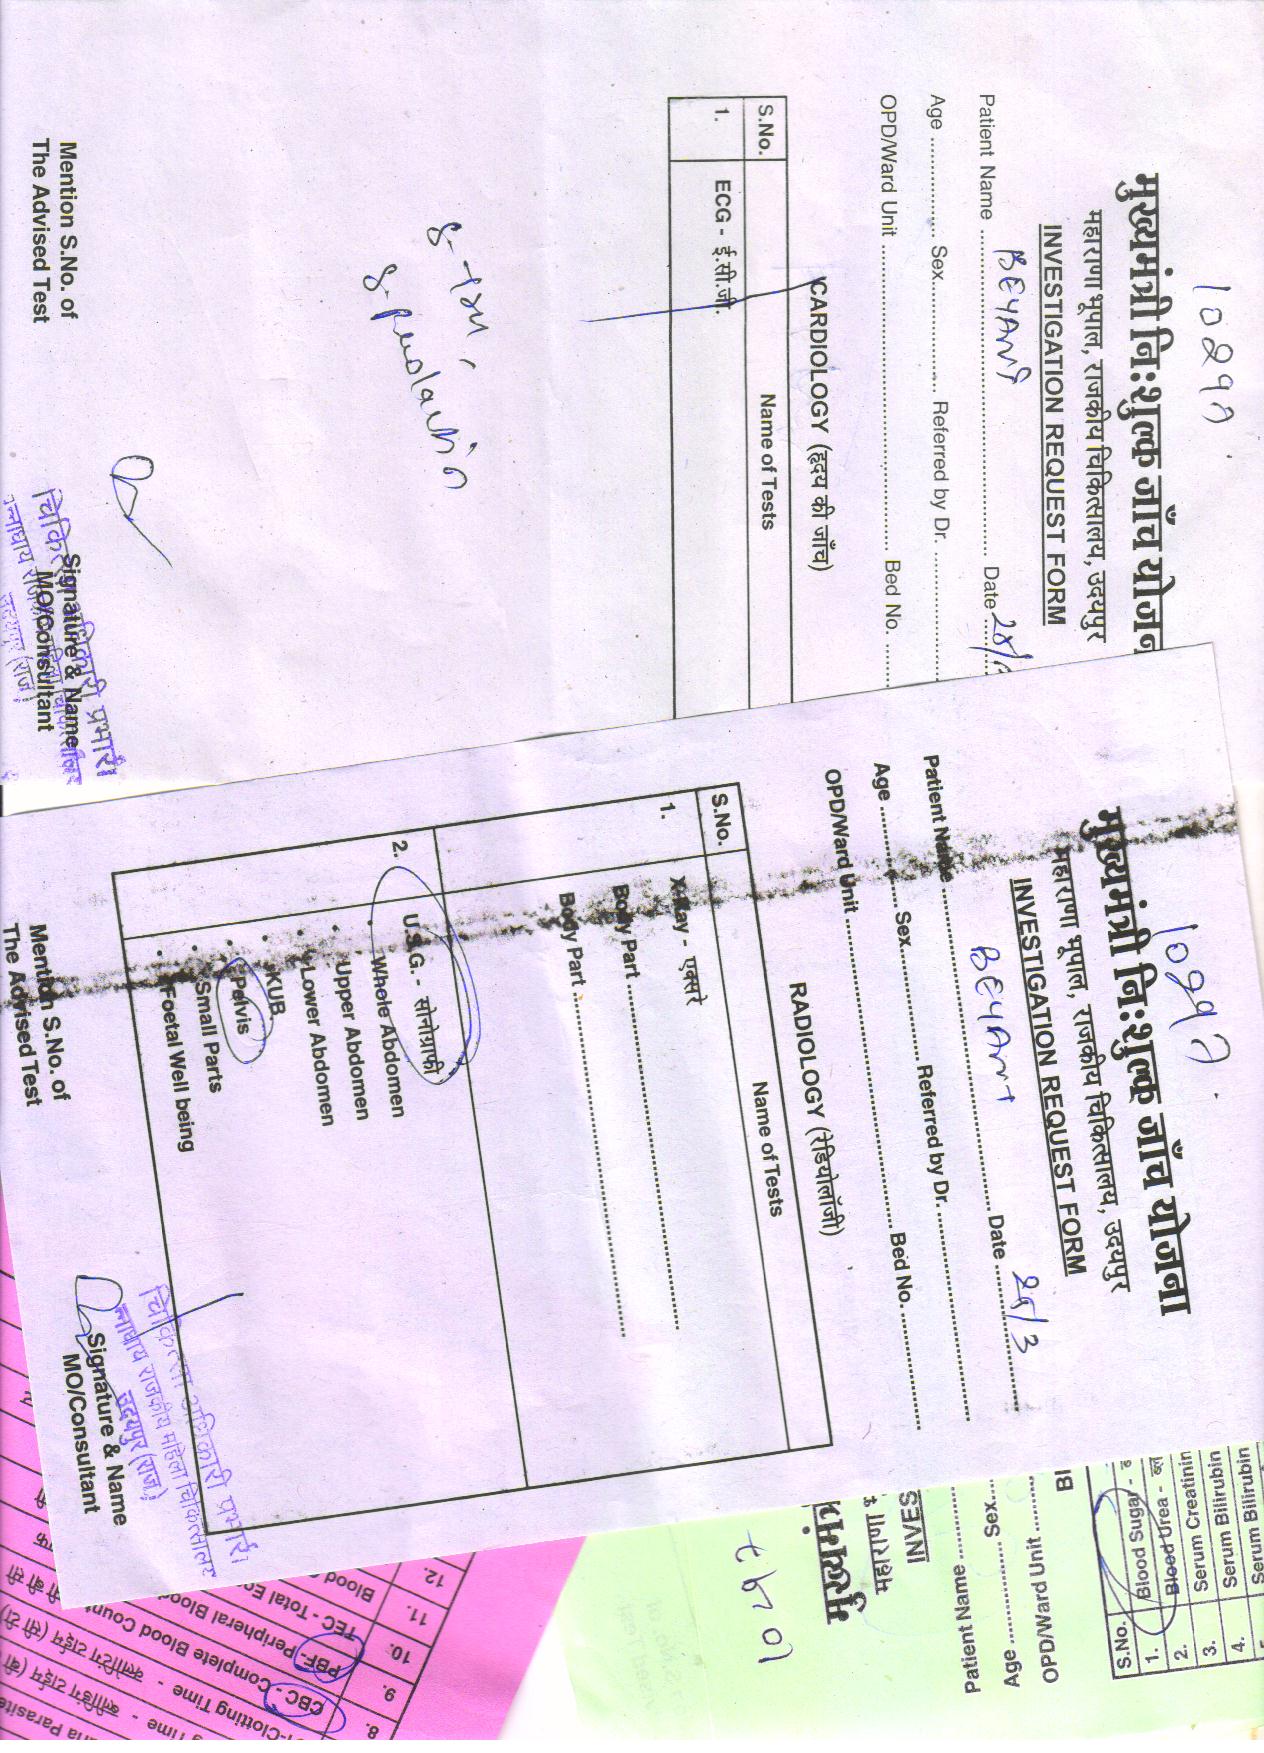 10297
मुख्यमंत्री नि:शुल्क जाँच योजन
महाराणा भूपाल, राजकीय चिकित्सालय, उदयपुर
INVESTIGATION REQUEST FORM
Patient Name BEYANT Date 28/
Age Sex Referred by Dr.
OPD/Ward Unit Bed No.
CARDIOLOGY (हृदय की जाँच)
S.No. Name of Tests
1. ECG - ई.सी.जी.
Mention S.No. of
The Advised Test
Signature & Name
MO/Consultant
10297
मुख्यमंत्री नि:शुल्क जाँच योजना
महाराणा भूपाल, राजकीय चिकित्सालय, उदयपुर
INVESTIGATION REQUEST FORM
Patient Name BEYANT Date 28/3
Age Sex Referred by Dr.
OPD/Ward Unit Bed No.
RADIOLOGY (रेडियोलॉजी)
S.No. Name of Tests
1. X-Ray - एक्सरे
Body Part
Body Part
2. U.S.G. - सोनोग्राफी
• Whole Abdomen
• Upper Abdomen
• Lower Abdomen
• KUB
• Pelvis
• Small Parts
• Foetal Well being
Mention S.No. of
The Advised Test
Signature & Name
MO/Consultant
चिकित्सा अधिकारी प्रभारी
राजकीय महिला चिकित्सालय
उदयपुर (राज.)
10297
INVES
Patient Name
Age Sex
OPD/Ward Unit
BI
S.No.
1. Blood Sugar -
2. Blood Urea -
3. Serum Creatinin
4. Serum Bilirubin
Serum Bilirubin
12. Blood
11. TEC - Total Eo
10. PBF- Peripheral Blood
9. CBC - Complete Blood Count
8. -Clotting Time - क्लोटिंग टाईम
Time - ब्लीडिंग टाईम
Parasite